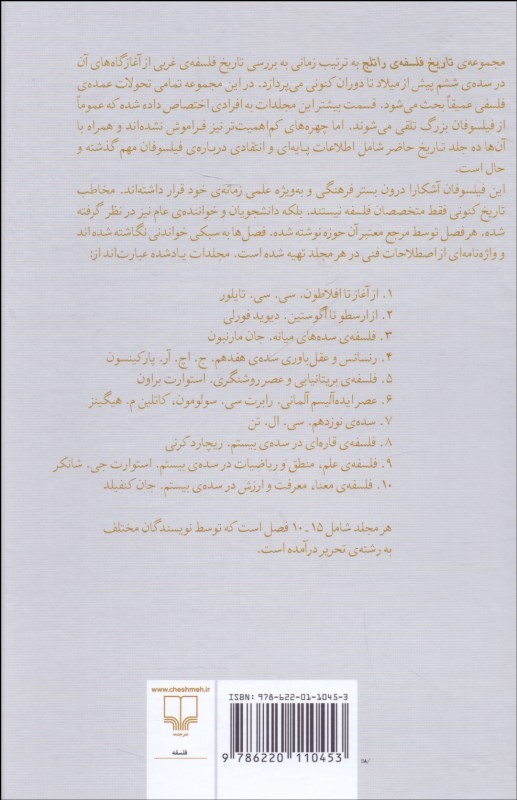 مجموعه‌ی تاریخ فلسفه‌ی راتلج به ترتیب زمانی به بررسی تاریخ فلسفه‌ی غربی از آغازگاه‌های آن
در سده‌ی ششم پیش از میلاد تا دوران کنونی می‌پردازد. در این مجموعه تمامی تحولات عمده‌ی
فلسفی عمیقاً بحث می‌شود. قسمت بیشتر این مجلدات به افرادی اختصاص داده شده که عموماً
از فیلسوفان بزرگ تلقی می‌شوند. اما چهره‌های کم‌اهمیت‌تر نیز فراموش نشده‌اند و همراه با
آن‌ها ده جلد تاریخ حاضر شامل اطلاعات پایه‌ای و انتقادی درباره‌ی فیلسوفان مهم گذشته و
حال است.
این فیلسوفان آشکارا درون بستر فرهنگی و به‌ویژه علمی زمانه‌ی خود قرار داشته‌اند. مخاطب
تاریخ کنونی فقط متخصصان فلسفه نیستند، بلکه دانشجویان و خواننده‌ی عام نیز در نظر گرفته
شده. هر فصل توسط مرجع معتبر آن حوزه نوشته شده. فصل‌ها به سبکی خواندنی نگاشته شده اند
و واژه‌نامه‌ای از اصطلاحات فنی در هر مجلد تهیه شده است. مجلدات یادشده عبارت‌اند از:
۱. از آغاز تا افلاطون. سی. سی. تایلور
۲. از ارسطو تا آگوستین. دیوید فورلی
۳. فلسفه‌ی سده‌های میانه. جان مارنبون
۴. رنسانس و عقل‌باوری سده‌ی هفدهم. ج. اچ. آر. پارکینسون
۵. فلسفه‌ی بریتانیایی و عصر روشنگری. استوارت براون
۶. عصر ایده‌آلیسم آلمانی. رابرت سی. سولومون، کاتلین م. هیگینز
۷. سده‌ی نوزدهم. سی. ال. تن
۸. فلسفه‌ی قاره‌ای در سده‌ی بیستم. ریچارد کرنی
۹. فلسفه‌ی علم، منطق و ریاضیات در سده‌ی بیستم. استوارت جی. شانکر
۱۰. فلسفه‌ی معنا، معرفت و ارزش در سده‌ی بیستم. جان کنفیلد
هر مجلد شامل ۱۵-۱۰ فصل است که توسط نویسندگان مختلف
به رشته‌ی تحریر درآمده است.
www.cheshmeh.ir
نشر چشمه
فلسفه
ISBN: 978-622-01-1045-3
9 786220 110453